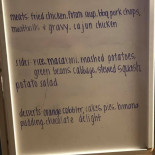 meats: fried chicken, fried catfish, bbq pork chops,
meatballs & gravy, cajun chicken
sides: rice, macaroni, mashed potatoes,
green beans, cabbage, stewed squash,
potato salad
desserts: orange cobbler, cakes, pies, banana
pudding, chocolate delight